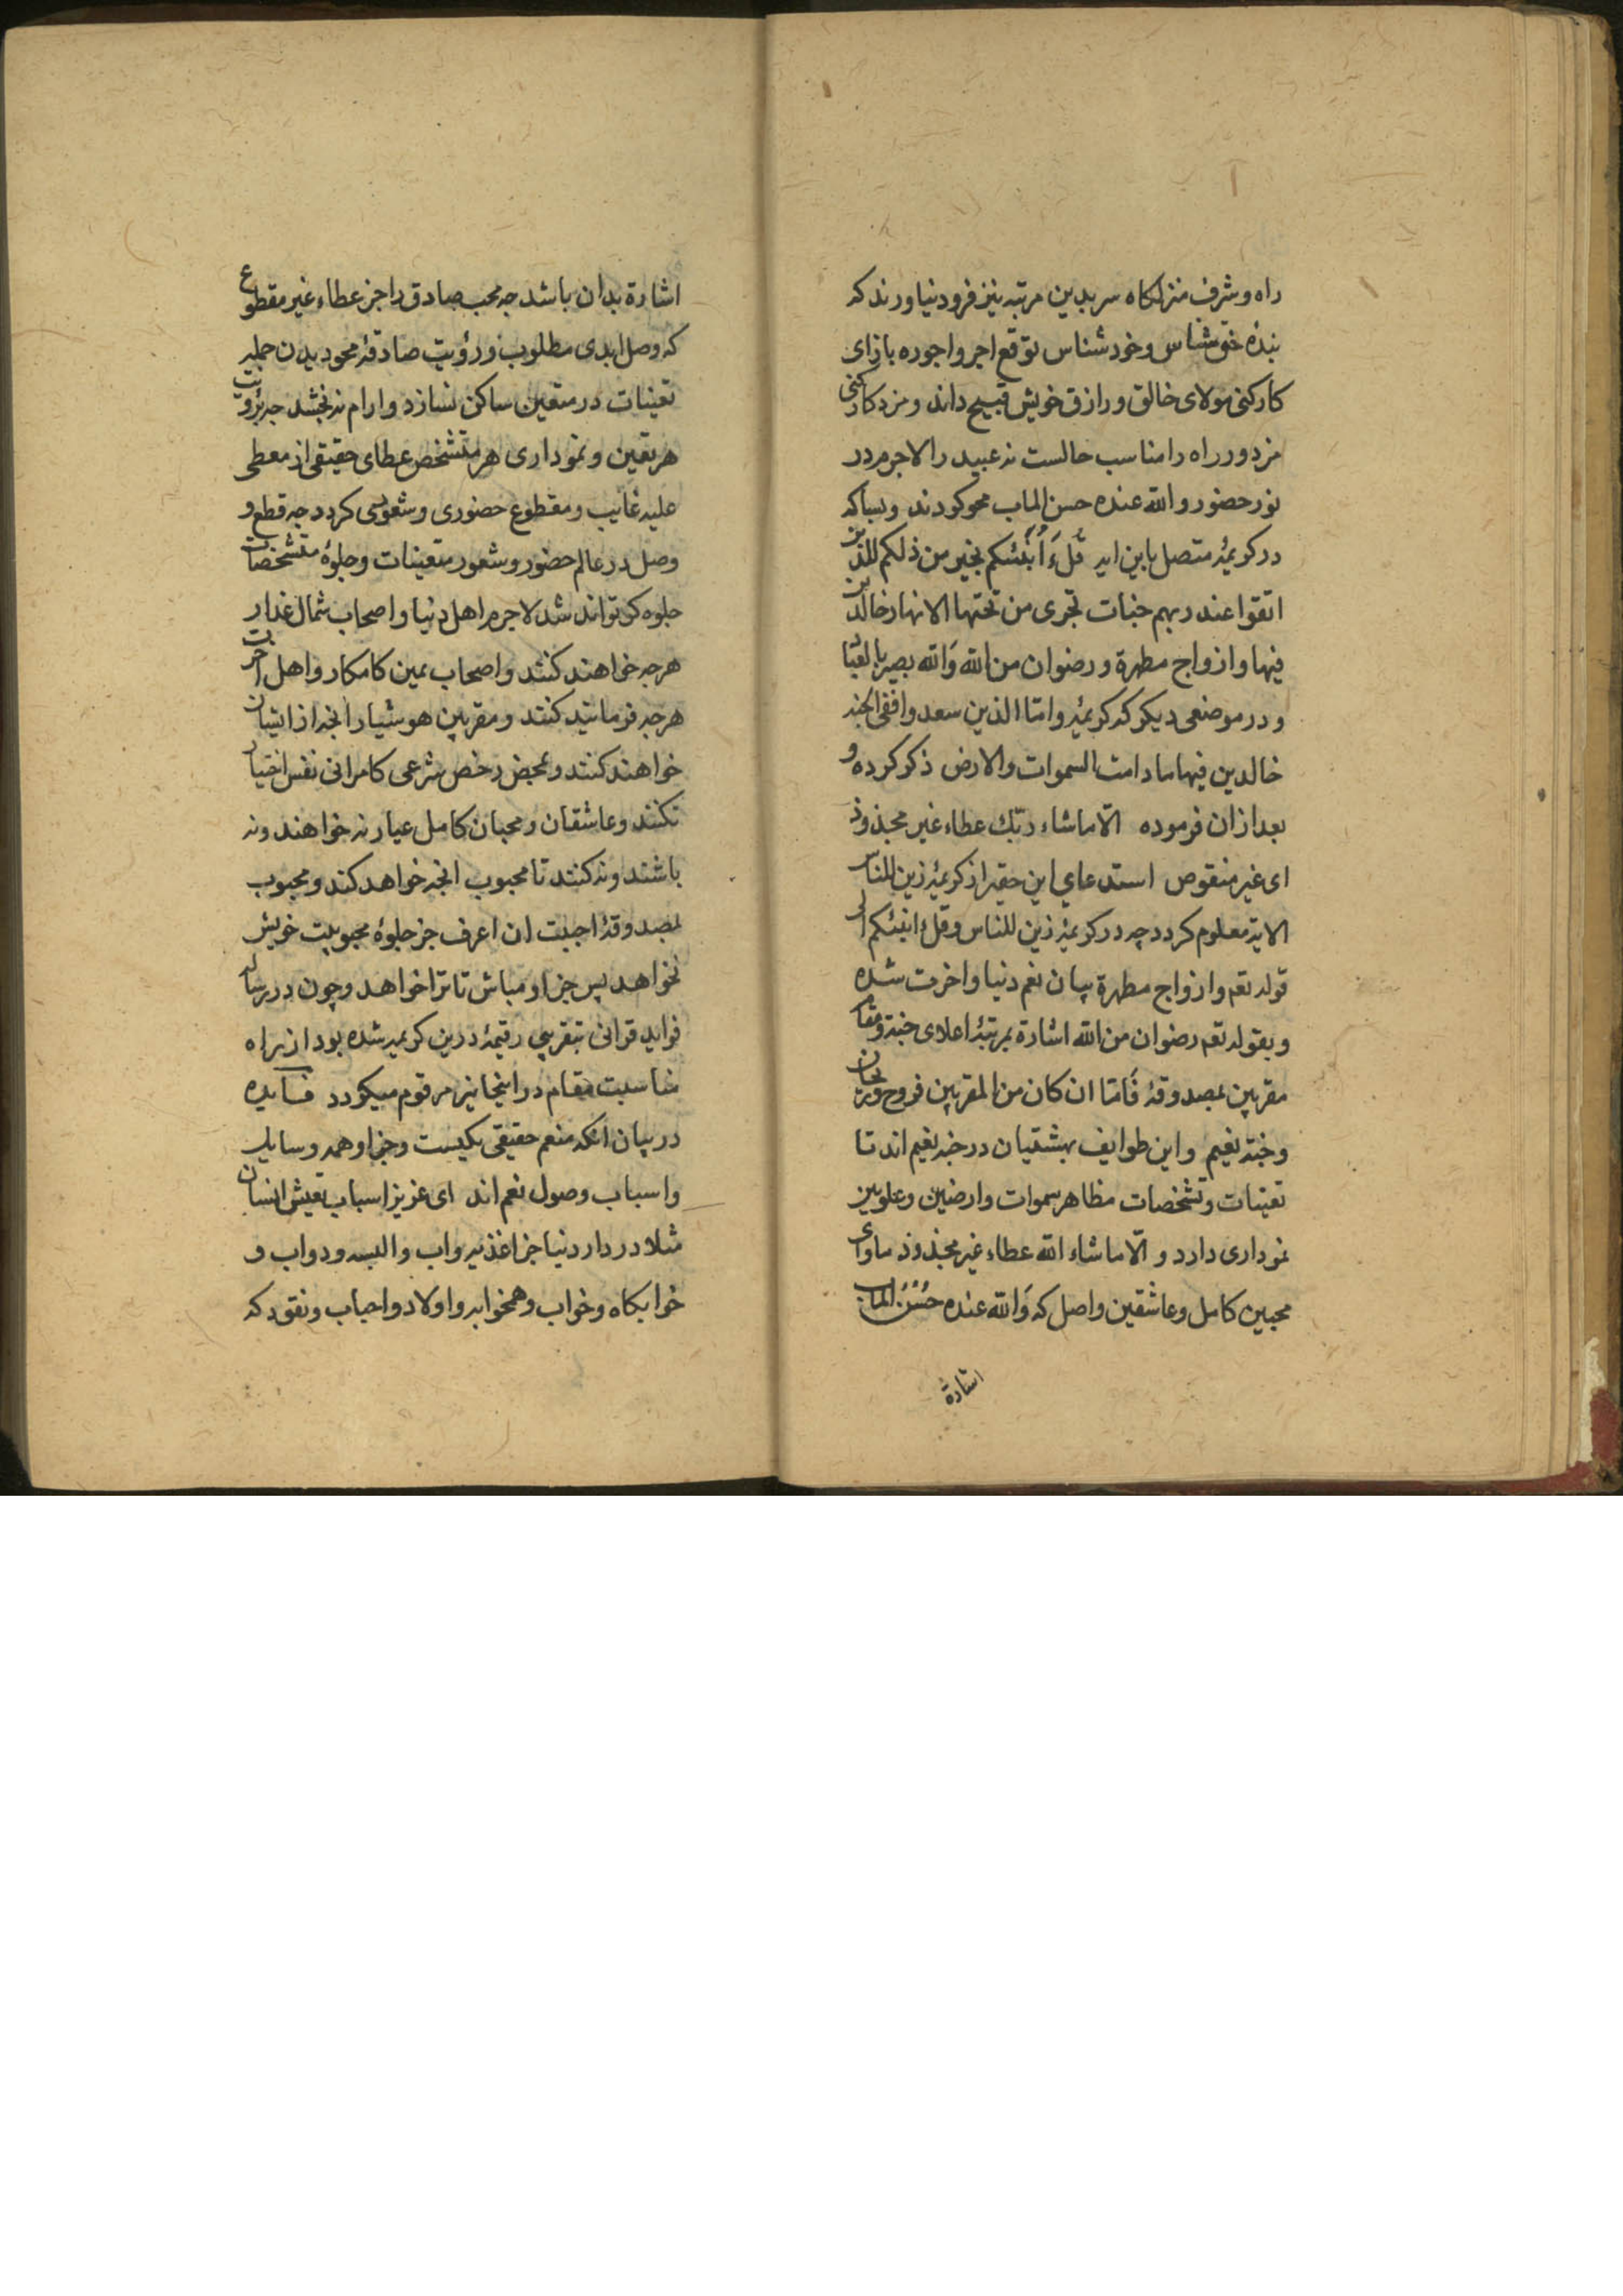 راه و شرف منزلکاه سر بدین مرتبه نیز فرود نیاورند که
بندۀ حق شناس و خود شناس توقع اجر و اجوره بازای
کار کنی مولای خالق و رازق خویش قبیح داند و مزد کار کنی
مزدور راه را مناسب حالست نه عبید را لاجرم در
نور حضور والله عنده حسن الماب محو کردند و بسا که
در کریمۀ متصل باین ایه قُل ءَاُنَبّئکم بخیر من ذلکم للذین
اتقوا عند ربهم جنات تجری من تحتها الانهار خالدین
فیها و ازواج مطهرة و رضوان من الله وَالله بصیر بالعباد
و در موضعی دیکر که کریمۀ و امّا الذین سعدوا ففی الجنه
خالدین فیها ما دامت السموات والارض ذکر کرده و
بعد از ان فرموده الّا ماشاء ربّک عطاء غیر مجذوذ
ای غیر منقوص استدعای این حقیر از کریمۀ زین للناس
الایة معلوم کردد چه در کریمۀ زین للناس و قل ءانبئکم الی
قوله تعم و ازواج مطهرة بیان نعم دنیا و اخرت شده
و بقوله تعم رضوان من الله اشارة بمرتبۀ اعلای جنة و مقام
مقربین بمصدوقۀ فَامّا ان کان من المقربین فروح و ریحان
وجنة نعیم و این طوایف بهشتیان در جنه نعیم اند تا
تعینات و تشخصات مظاهر سموات و ارضین و علویین
نموداری دارد و الّا ماشاء الله عطاء غیر مجذوذ ماوای
محبین کامل و عاشقین واصل که وَالله عنده حُسْنُ الماب
اشارة
اشارة بدان باشد چه محب صادق را جز عطاء غیر مقطوع
که وصل ابدی مطلوب و رؤیت صادقۀ محو دیدن جمله
تعینات در متعین ساکن نسازد و ارام نه بخشد چه برؤیت
هر تعین و نموداری هر متشخص عطای حقیقی از معطی
علیه غایب و مقطوع حضوری و شعوری کردد چه قطع و
وصل در عالم حضور و شعور متعینات و جلوۀ متشخصات
جلوه کر تواند شد لاجرم اهل دنیا و اصحاب شمال غدار
هرچه خواهند کنند و اصحاب یمین کامکار و اهل اخرت
هرچه فرمایند کنند و مقربین هوشیار انچه از ایشان
خواهند کنند و بمحض رخص شرعی کامرانی نفس اختیار
نکنند و عاشقان و محبان کامل عیار نه خواهند و نه
باشند و نه کنند تا محبوب انچه خواهد کند و محبوب
بمصدوقۀ احببت ان اعرف جز جلوۀ محبوبیت خویش
نخواهد پس جز او مباش تا ترا خواهد و چون در رساله
فواید قرانی بتقریبی رقیمۀ درین کریمه شده بود از براه
مناسبت مقام در اینجا نیز مرقوم میکردد فایده
در بیان انکه منعم حقیقی یکیست و جز او همه وسایل
و اسباب وصول نعم اند ای عزیز اسباب تعیش انسان
مثلا در دار دنیا جز اغذیه و اب و البسه و دواب و
خوابکاه و خواب و همخوابه و اولاد و احباب و نقود که